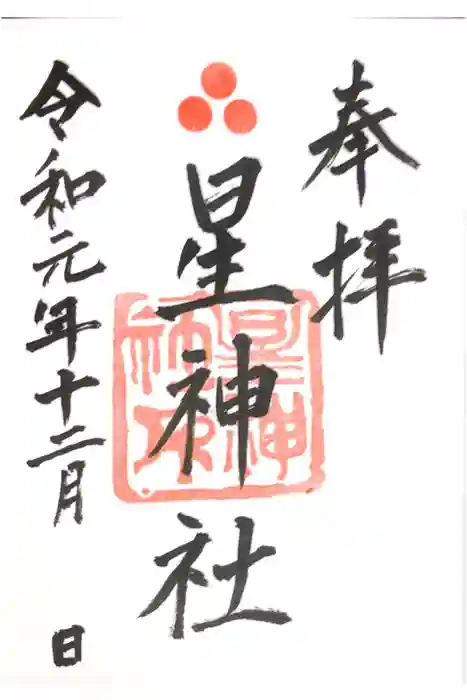 奉拝
星神社
令和元年十二月 日